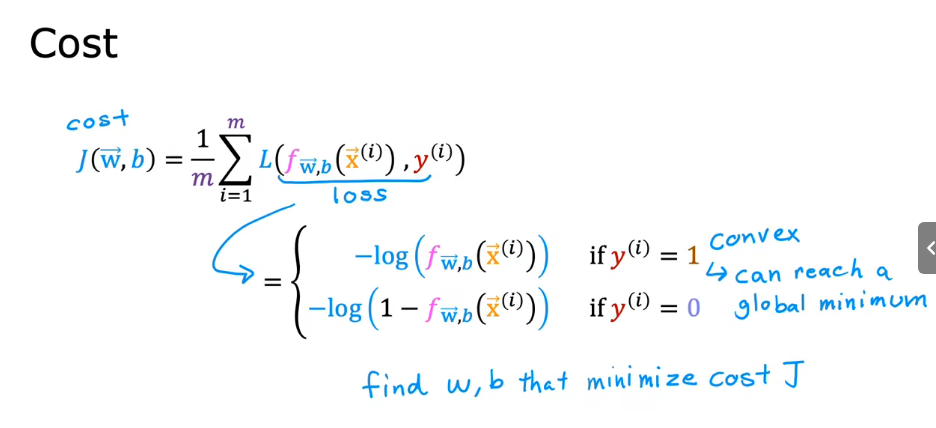 Cost
cost
J(w⃗, b) = 1/m ∑_{i=1}^{m} L(f_{w⃗,b}(x⃗^{(i)}), y^{(i)})
loss
= { −log(f_{w⃗,b}(x⃗^{(i)})) if y^{(i)} = 1
−log(1 − f_{w⃗,b}(x⃗^{(i)})) if y^{(i)} = 0
convex
↳ can reach a
global minimum
find w, b that minimize cost J